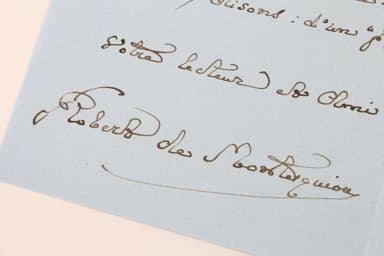 disons : d'un "p
Votre lecteur et Ami
Robert de Montesquiou